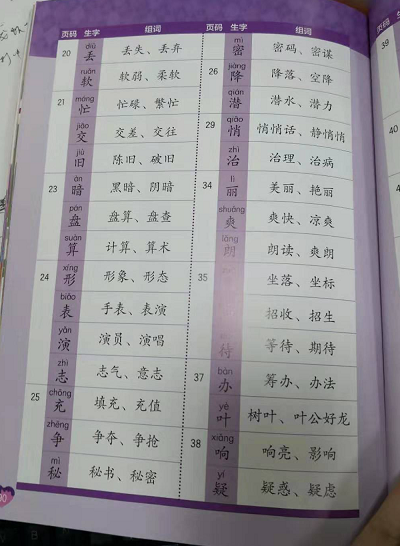 页码 生字 组词
diū
20 丢 丢失、丢弃
ruǎn
软 软弱、柔软
máng
21 忙 忙碌、繁忙
jiāo
交 交差、交往
jiù
旧 陈旧、破旧
àn
23 暗 黑暗、阴暗
pán
盘 盘算、盘查
suàn
算 计算、算术
xíng
24 形 形象、形态
biǎo
表 手表、表演
yǎn
演 演员、演唱
zhì
志 志气、意志
chōng
25 充 填充、充值
zhēng
争 争夺、争抢
mì
秘 秘书、秘密
页码 生字 组词
mì
密 密码、密谋
jiàng
26 降 降落、空降
qián
潜 潜水、潜力
qiāo
29 悄 悄悄话、静悄悄
zhì
治 治理、治病
lì
34 丽 美丽、艳丽
shuǎng
爽 爽快、凉爽
lǎng
朗 朗读、爽朗
35 坐落、坐标
招收、招生
待 等待、期待
bàn
37 办 筹办、办法
yè
叶 树叶、叶公好龙
xiǎng
38 响 响亮、影响
yí
疑 疑惑、疑虑
39
40